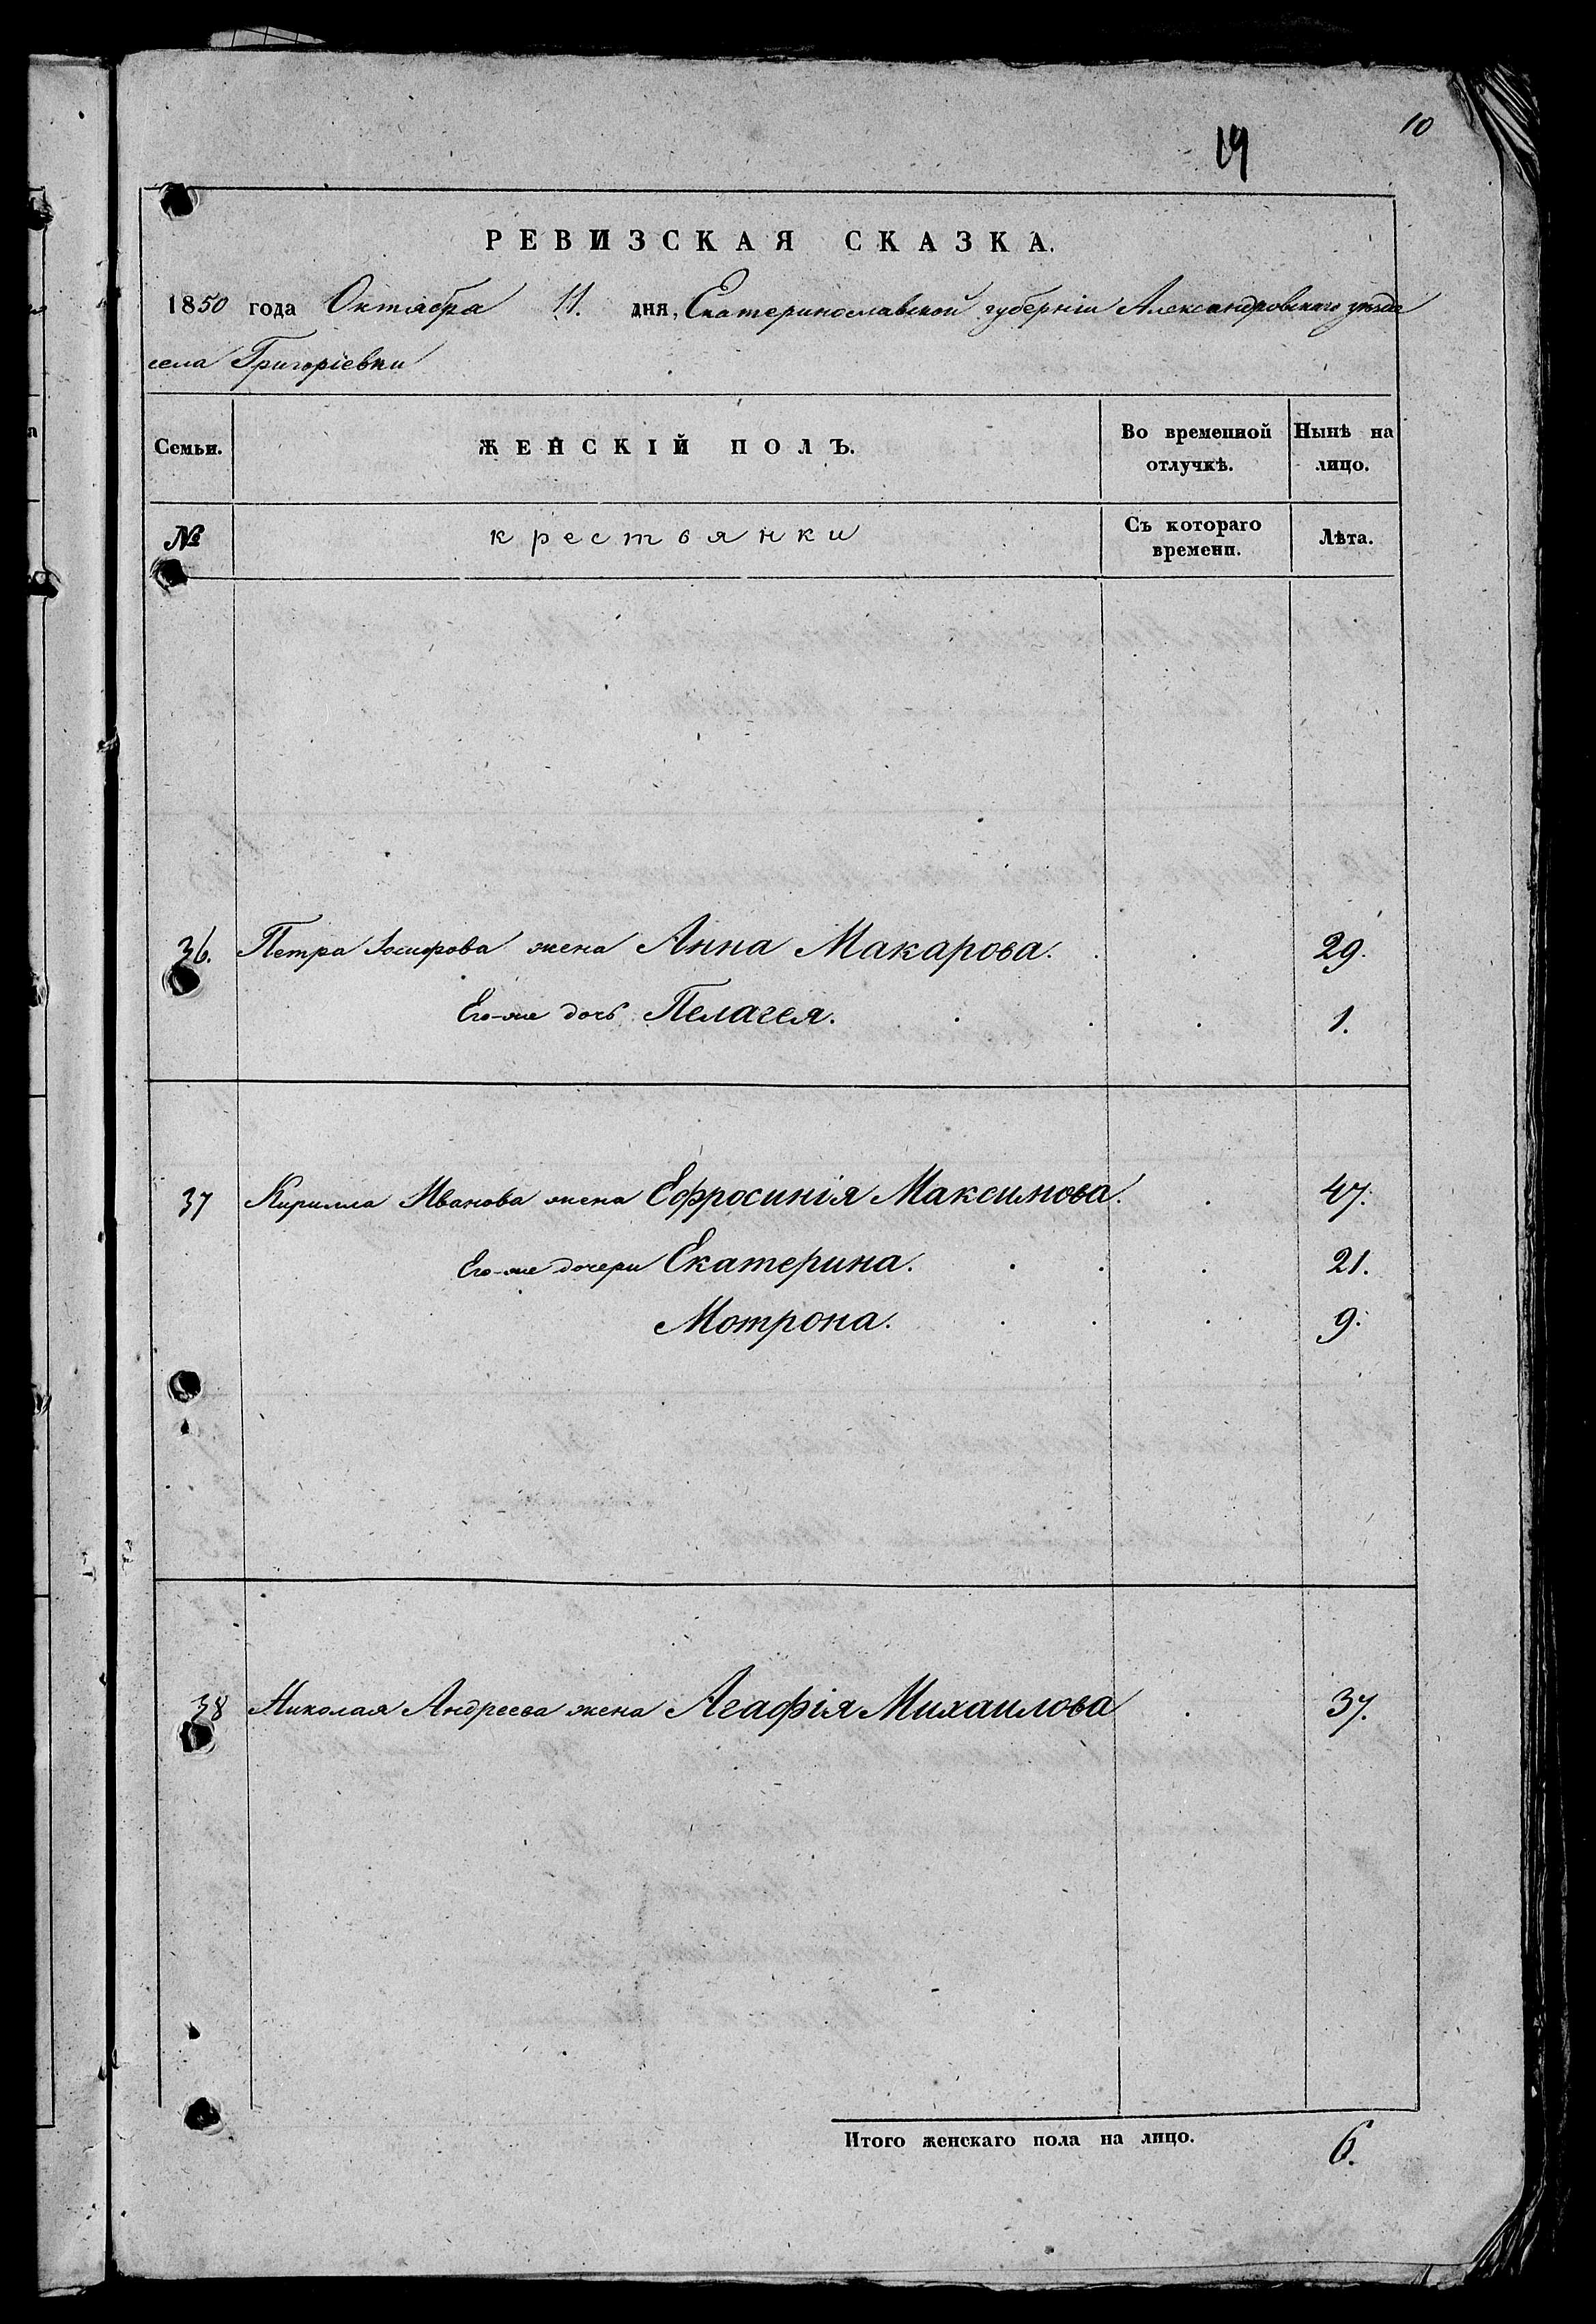 10
19
РЕВИЗСКАЯ СКАЗКА.
1850 года Октября 11. дня, Екатеринославской губерніи Александровскаго уезда
села Григоріевки
Семьи. ЖЕНСКІЙ ПОЛЪ. Во временной отлучкѣ. Нынѣ на лицо.
№ крестьянки Съ котораго времени. Лѣта.
36. Петра Іосифова жена Анна Макарова. 29.
Его-же дочь Пелагея. 1.
37 Кирилла Иванова жена Ефросинія Максимова. 47.
Его-же дочери Екатерина. 21.
Мотрона. 9.
38 Николая Андреева жена Агафія Михаилова 37.
Итого женскаго пола на лицо. 6.